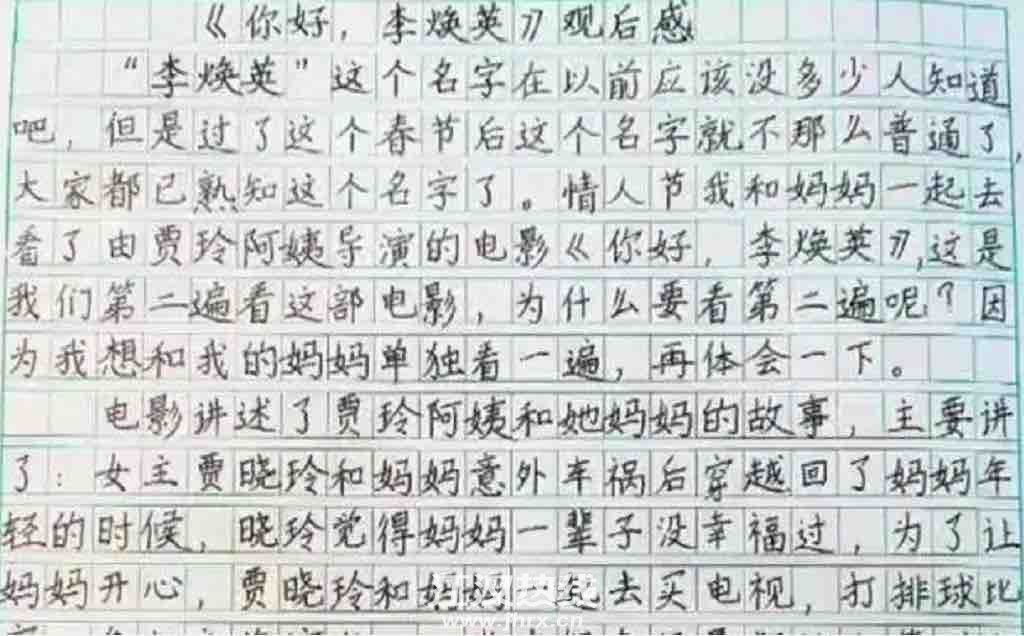 《你好,李焕英》观后感
“李焕英”这个名字在以前应该没多少人知道
吧,但是过了这个春节后这个名字就不那么普通了,
大家都已熟知这个名字了。情人节我和妈妈一起去
看了由贾玲阿姨导演的电影《你好,李焕英》,这是
我们第二遍看这部电影,为什么要看第二遍呢?因
为我想和我的妈妈单独看一遍,再体会一下。
电影讲述了贾玲阿姨和她妈妈的故事,主要讲
了:女主贾晓玲和妈妈意外车祸后穿越回了妈妈年
轻的时候,晓玲觉得妈妈一辈子没幸福过,为了让
妈妈开心,贾晓玲和妈妈一起去买电视,打排球比